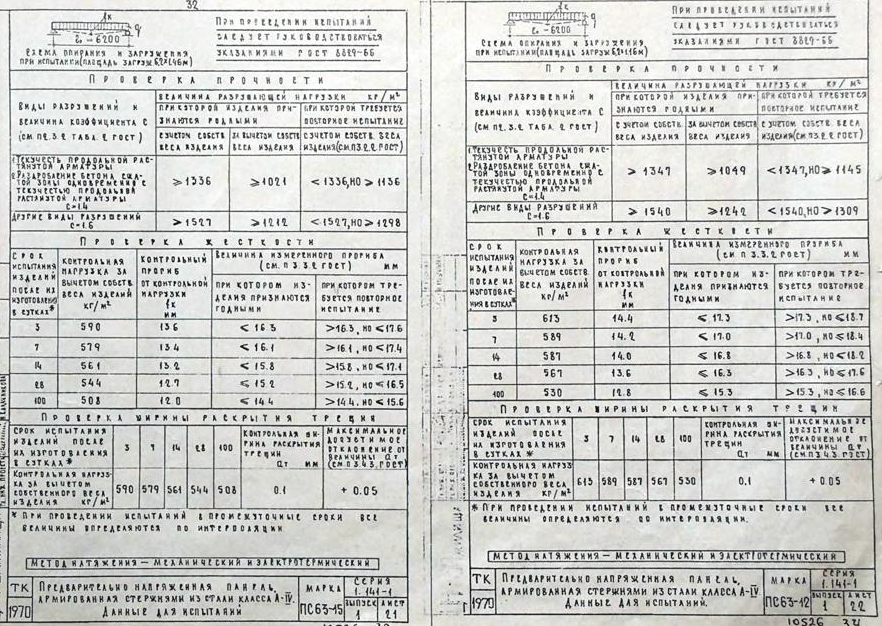 32
fк
q
ℓо – 6200
Схема опирания и загружения
при испытании (площадь загруж. 6,2×1,46м)
При проведении испытаний
следует руководствоваться
указаниями ГОСТ 8829-66
Проверка прочности
Виды разрушений и
величина коэффициента С
(см п2.3.2 табл. 2 ГОСТ)
Величина разрушающей нагрузки кг/м²
при которой изделия при-
знаются годными
при которой требуется
повторное испытание
с учетом собств.
веса изделия
за вычетом собств.
веса изделия
с учетом собств. веса
изделия (см. п3.2.2 ГОСТ)
1 Текучесть продольной рас-
тянутой арматуры
2 Раздробление бетона сжа-
той зоны одновременно с
текучестью продольной
растянутой арматуры
С=1.4
≥1336
≥1021
<1336, но ≥ 1136
Другие виды разрушений
С=1.6
≥1527
≥1212
<1527, но ≥1298
Проверка жесткости
Срок
испытания
изделий
после их
изготовления
в сутках*
Контрольная
нагрузка за
вычетом собств.
веса изделий
кг/м²
Контрольный
прогиб
от контрольной
нагрузки
fк
мм
Величина измеренного прогиба
(см. п 3.3.2 ГОСТ) мм
при котором из-
делия признаются
годными
при котором тре-
буется повторное
испытание
3 590 13.6 ≤ 16.3 >16.3, но ≤17.6
7 579 13.4 ≤ 16.1 >16.1, но ≤17.4
14 561 13.2 ≤ 15.8 >15.8, но ≤17.1
28 544 12.7 ≤ 15.2 >15.2, но ≤16.5
100 508 12.0 ≤ 14.4 >14.4, но ≤15.6
Проверка ширины раскрытия трещин
Срок испытания
изделий после
их изготовления
в сутках*
7 14 28 100
Контрольная ши-
рина раскрытия
трещин
αт мм
Максимальное
допустимое
отклонение от
величины αт
(см п 3.4.3 ГОСТ)
Контрольная нагруз-
ка за вычетом
собственного веса
изделия кг/м²
590 579 561 544 508 0.1 + 0.05
* При проведении испытаний в промежуточные сроки все
величины определяются по интерполяции
Метод натяжения – механический и электротермический
ТК
1970
Предварительно напряженная панель,
армированная стержнями из стали класса А-IV.
Данные для испытаний
Марка
ПС63-15
Серия
1.141-1
Выпуск
1
Лист
21
10526
fк
q
ℓо – 6200
Схема опирания и загружения
при испытании (площадь загруж. 6,2×1,16м)
При проведении испытаний
следует руководствоваться
указаниями ГОСТ 8829-66
Проверка прочности
Виды разрушений и
величина коэффициента С
(см п2.3.2 табл. 2 ГОСТ)
Величина разрушающей нагрузки кг/м²
при которой изделия при-
знаются годными
при которой требуется
повторное испытание
с учетом собств.
веса изделия
за вычетом собств.
веса изделия
с учетом собств. веса
изделия (см. п3.2.2 ГОСТ)
1 Текучесть продольной рас-
тянутой арматуры
2 Раздробление бетона сжа-
той зоны одновременно с
текучестью продольной
растянутой арматуры
С=1.4
≥ 1347
≥1049
<1347, но ≥ 1145
Другие виды разрушений
С=1.6
≥ 1540
≥1242
<1540, но ≥1309
Проверка жесткости
Срок
испытания
изделий
после их
изготовле-
ния в сутках*
Контрольная
нагрузка за
вычетом собств.
веса изделий
кг/м²
Контрольный
прогиб
от контрольной
нагрузки
fк
мм
Величина измеренного прогиба
(см. п 3.3.2 ГОСТ) мм
при котором из-
делия признаются
годными
при котором тре-
буется повторное
испытание
3 613 14.4 ≤ 17.3 >17.3, но ≤18.7
7 589 14.2 ≤ 17.0 >17.0, но ≤18.4
14 587 14.0 ≤ 16.8 >16.8, но ≤18.2
28 567 13.6 ≤ 16.3 >16.3, но ≤17.6
100 530 12.8 ≤ 15.3 >15.3, но ≤16.6
Проверка ширины раскрытия трещин
Срок испытания
изделий после
их изготовления
в сутках*
3 7 14 28 100
Контрольная ши-
рина раскрытия
трещин
αт мм
Максимальное
допустимое
отклонение от
величины αт
(см п 3.4.3 ГОСТ)
Контрольная нагруз-
ка за вычетом
собственного веса
изделия кг/м²
613 589 587 567 530 0.1 + 0.05
* При проведении испытаний в промежуточные сроки все
величины определяются по интерполяции.
Метод натяжения – механический и электротермический
ТК
1970
Предварительно напряженная панель,
армированная стержнями из стали класса А-IV.
Данные для испытаний.
Марка
ПС63-12
Серия
1.141-1
Выпуск
1
Лист
22
10526 34